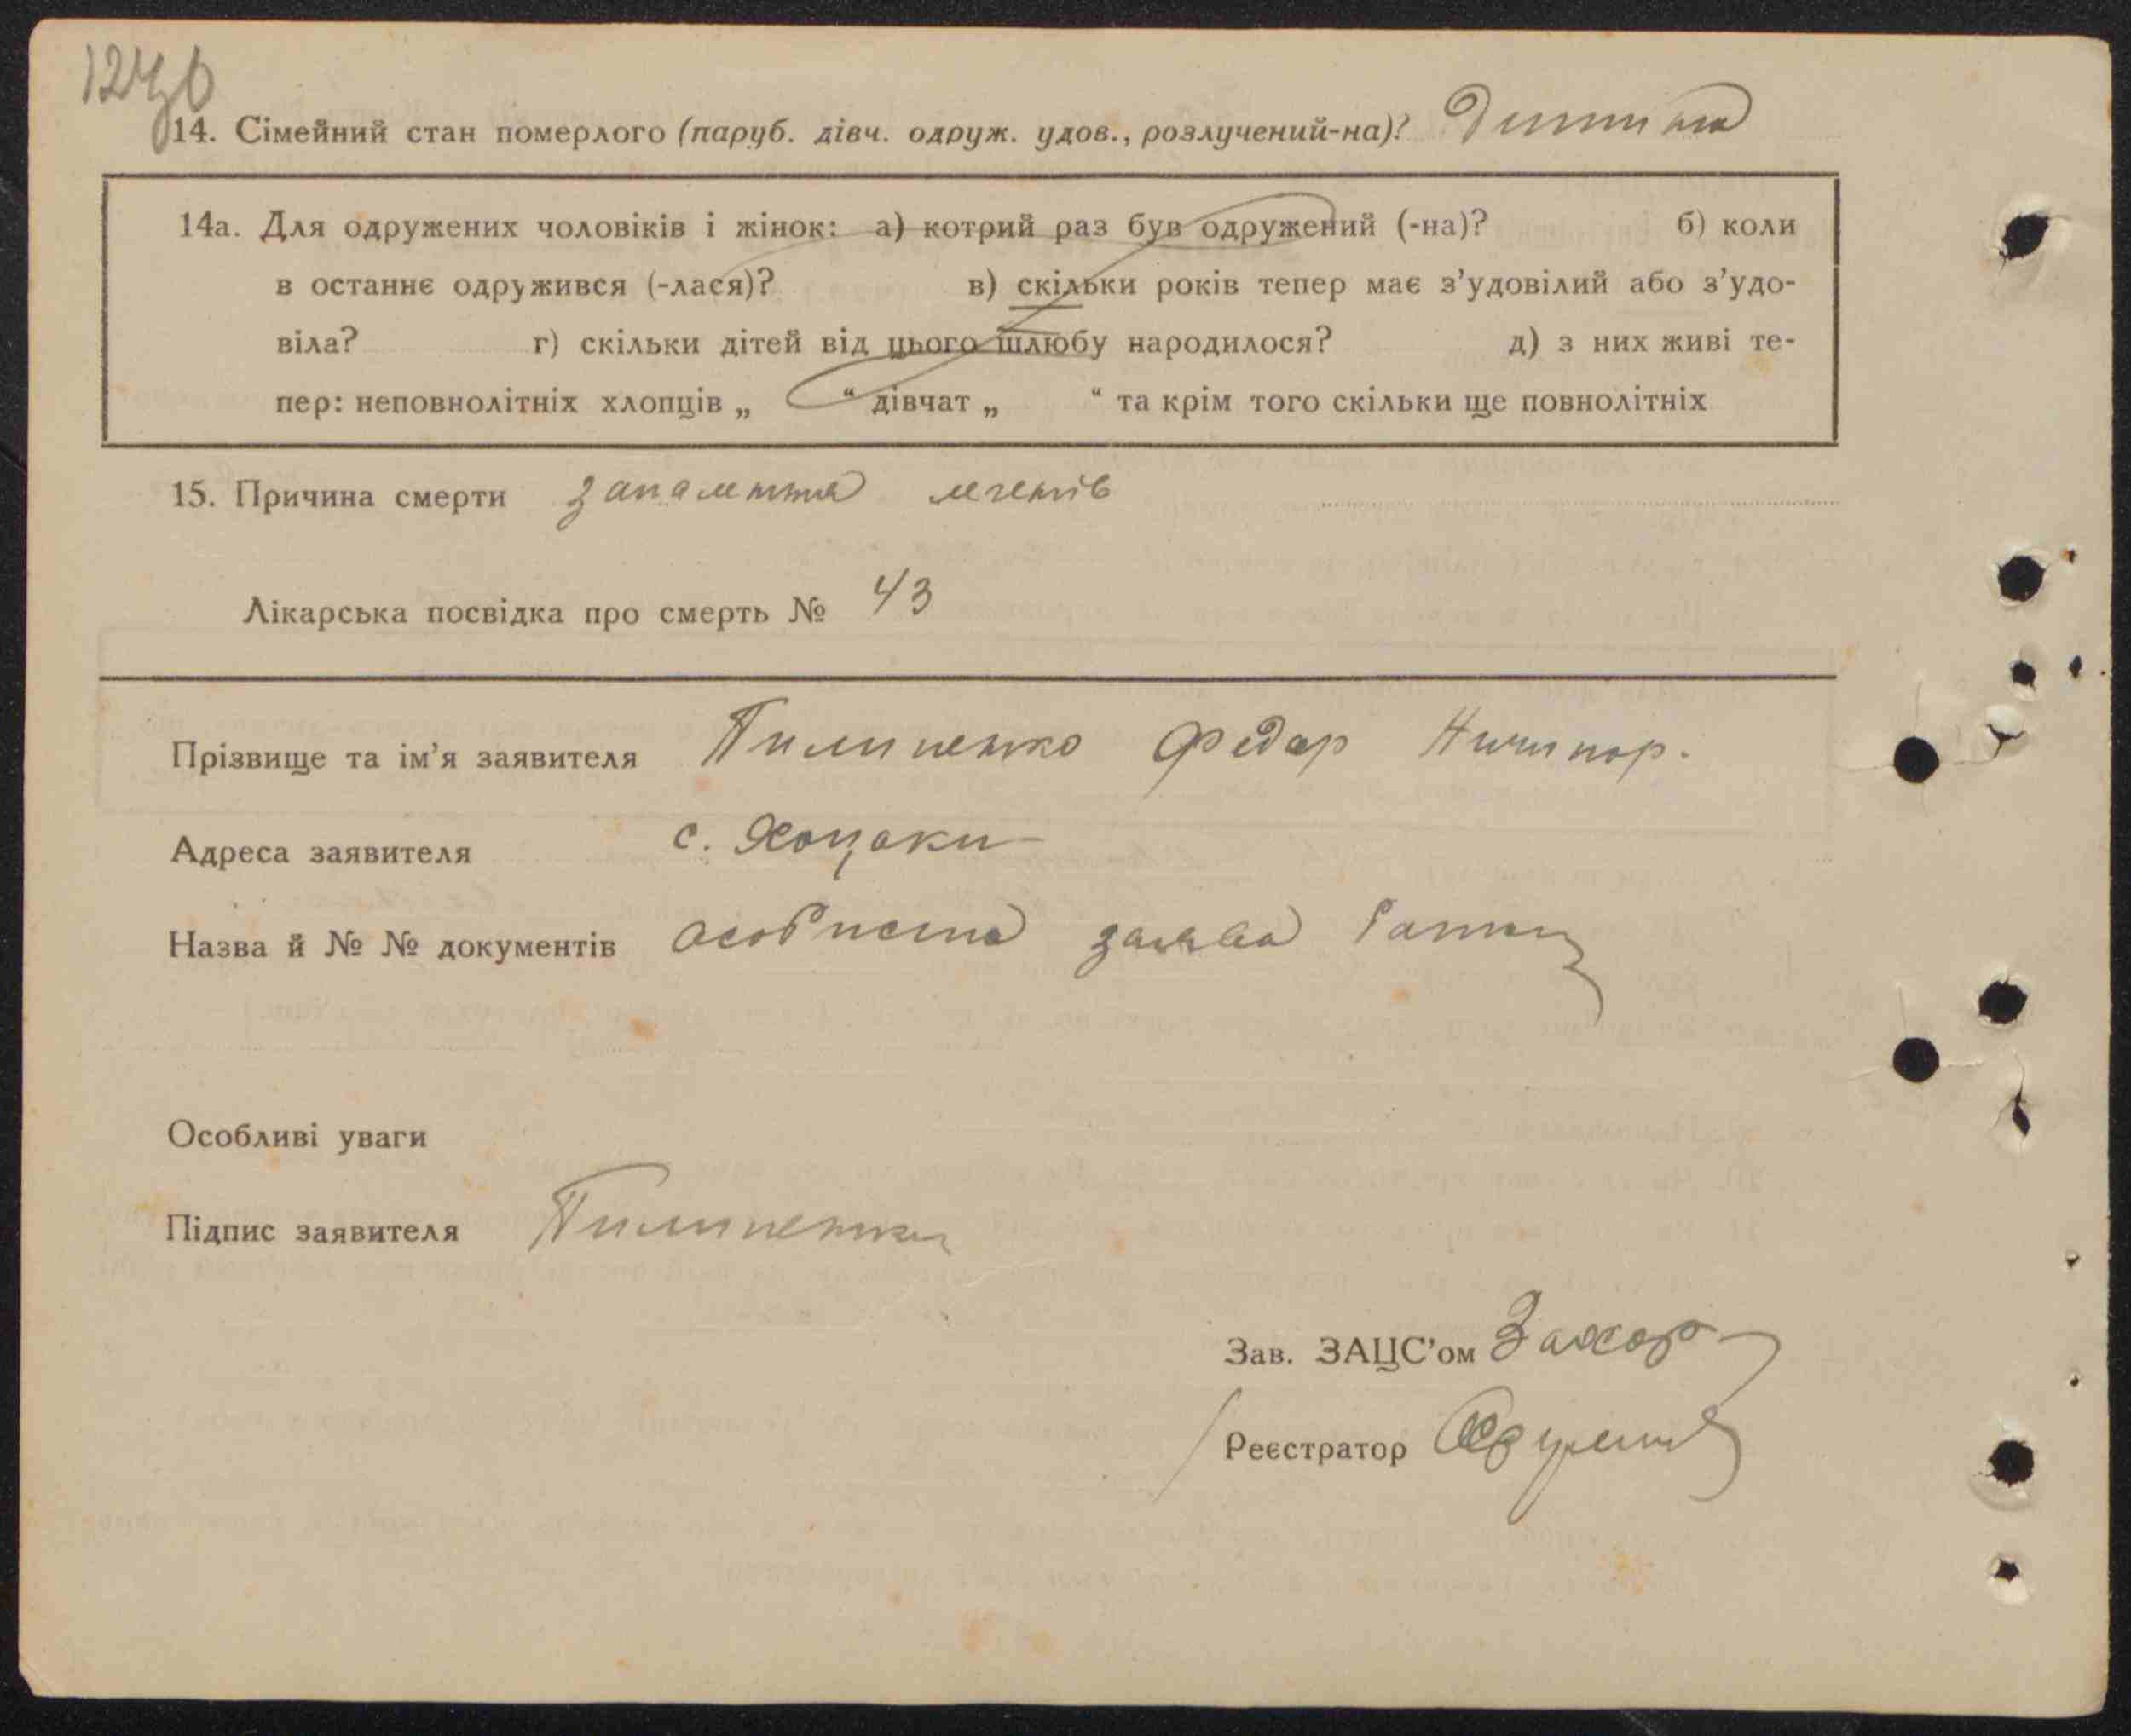 14. Сімейний стан померлого (паруб. дівч. одруж. удов., розлучений-на)? Дитина
14а. Для одружених чоловіків і жінок: а) котрий раз був одружений (-на)? б) коли
в останнє одружився (-лася)? в) скільки років тепер має з’удовілий або з’удо-
віла? г) скільки дітей від цього шлюбу народилося? д) з них живі те-
пер: неповнолітніх хлопців „ “ дівчат „ “ та крім того скільки ще повнолітніх
15. Причина смерти запалення легенів
Лікарська посвідка про смерть № 43
Прізвище та ім’я заявителя Пилипенко Федор Ничипор.
Адреса заявителя с. Хоцьки
Назва й № № документів особиста заява
Особливі уваги
Підпис заявителя Пилипенко
Зав. ЗАЦС’ом
Реєстратор